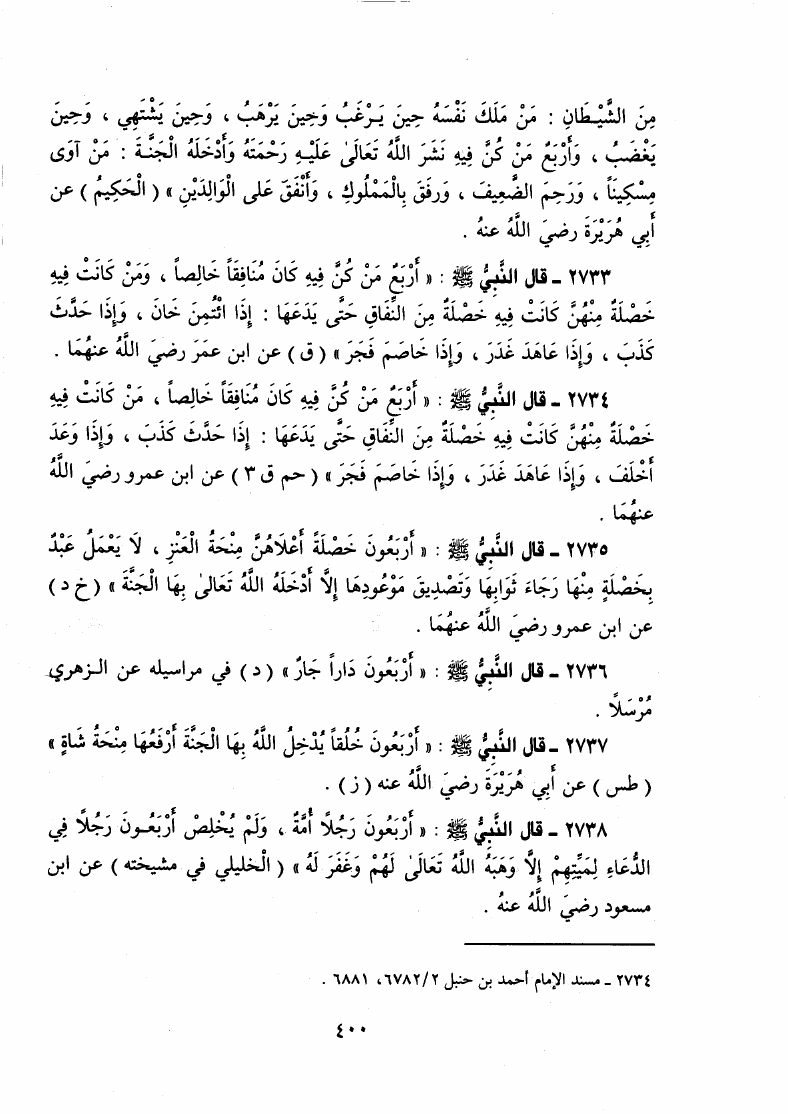 مِنَ الشَّيْطَانِ : مَنْ مَلَكَ نَفْسَهُ حِينَ يَرْغَبُ وَحِينَ يَرْهَبُ ، وَحِينَ يَشْتَهِي ، وَحِينَ
يَغْضَبُ ، وَأَرْبَعٌ مَنْ كُنَّ فِيهِ نَشَرَ اللَّهُ تَعَالَىٰ عَلَيْهِ رَحْمَتَهُ وَأَدْخَلَهُ الْجَنَّةَ : مَنْ آوَى
مِسْكِيناً ، وَرَحِمَ الضَّعِيفَ ، وَرَفَقَ بِالْمَمْلُوكِ ، وَأَنْفَقَ عَلى الْوَالِدَيْنِ » ( الْحَكِيمُ ) عن
أَبِي هُرَيْرَةَ رضيَ اللَّهُ عنهُ .
٢٧٣٣ ـ قال النَّبِيُّ ﷺ : « أَرْبَعٌ مَنْ كُنَّ فِيهِ كَانَ مُنَافِقاً خَالِصاً ، وَمَنْ كَانَتْ فِيهِ
خَصْلَةٌ مِنْهُنَّ كَانَتْ فِيهِ خَصْلَةٌ مِنَ النِّفَاقِ حَتَّى يَدَعَهَا : إِذَا ائْتُمِنَ خَانَ ، وَإِذَا حَدَّثَ
كَذَبَ ، وَإِذَا عَاهَدَ غَدَرَ ، وَإِذَا خَاصَمَ فَجَرَ » ( ق ) عن ابن عمَرَ رضيَ اللَّهُ عنهُمَا .
٢٧٣٤ ـ قال النَّبِيُّ ﷺ : « أَرْبَعٌ مَنْ كُنَّ فِيهِ كَانَ مُنَافِقاً خَالِصاً ، مَنْ كَانَتْ فِيهِ
خَصْلَةٌ مِنْهُنَّ كَانَتْ فِيهِ خَصْلَةٌ مِنَ النِّفَاقِ حَتَّى يَدَعَهَا : إِذَا حَدَّثَ كَذَبَ ، وَإِذَا وَعَدَ
أَخْلَفَ ، وَإِذَا عَاهَدَ غَدَرَ ، وَإِذَا خَاصَمَ فَجَرَ » ( حم ق ٣ ) عن ابن عمرو رضيَ اللَّهُ
عنهُمَا .
٢٧٣٥ ـ قال النَّبِيُّ ﷺ : « أَرْبَعُونَ خَصْلَةً أَعْلَاهُنَّ مِنْحَةُ الْعَنْزِ ، لَا يَعْمَلُ عَبْدٌ
بِخَصْلَةٍ مِنْهَا رَجَاءَ ثَوَابِهَا وَتَصْدِيقَ مَوْعُودِهَا إِلَّا أَدْخَلَهُ اللَّهُ تَعَالىٰ بِهَا الْجَنَّةَ » ( خ د )
عن ابن عمرو رضيَ اللَّهُ عنهُمَا .
٢٧٣٦ ـ قال النَّبِيُّ ﷺ : « أَرْبَعُونَ دَاراً جَارٌ » ( د ) في مراسيله عن الـزهري
مُرْسَلًا .
٢٧٣٧ ـ قال النَّبِيُّ ﷺ : « أَرْبَعُونَ خُلُقاً يُدْخِلُ اللَّهُ بِهَا الْجَنَّةَ أَرْفَعُهَا مِنْحَةُ شَاةٍ »
( طس ) عن أَبِي هُرَيْرَةَ رضيَ اللَّهُ عنه ( ز ) .
٢٧٣٨ ـ قال النَّبِيُّ ﷺ : « أَرْبَعُونَ رَجُلًا أُمَّةٌ ، وَلَمْ يُخْلِصْ أَرْبَعُونَ رَجُلًا فِي
الدُّعَاءِ لِمَيِّتِهِمْ إِلَّا وَهَبَهُ اللَّهُ تَعَالَىٰ لَهُمْ وَغَفَرَ لَهُ » ( الْخليلي في مشيخته ) عن ابن
مسعود رضيَ اللَّهُ عنهُ .
٢٧٣٤ ـ مسند الإمام أحمد بن حنبل ٦٧٨٢/٢، ٦٨٨١ .
٤٠٠